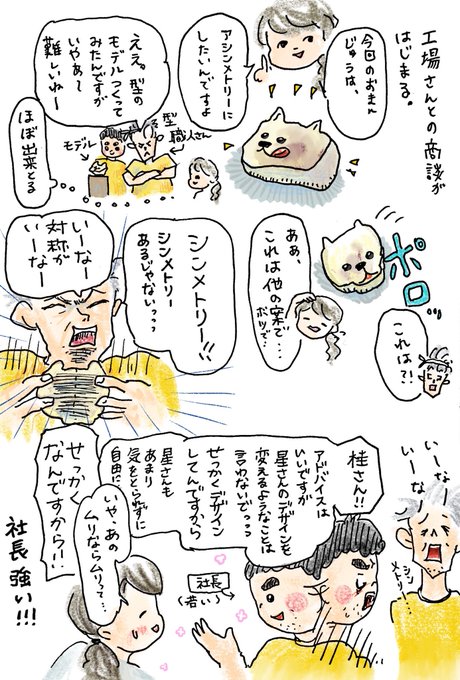 工場さんとの商談が
はじまる。
今回のおまん
じゅうは、
アシンメトリーに
したいんですよ
ええ。型の
モデルつくって
みたんですが
いやぁ〜
難しいねー
型
職人さん
モデル
ほぼ出来とる
ポロッ
これは?!
ああ、
これは他の案で…
ボツで…
シンメトリー!!
シンメトリー
あるじゃないっっっ
いーなー
対称が
いーなー
いーな
いーなー
シン
メトリー…
桂さん!!
アドバイスは
いいですが
星さんのデザインを
変えるようなことは
言わないでっっっ
せっかくデザイン
してんですから
星さんも
あまり
気をとられずに
自由に
せっかく
なんですから!!
社長
(若い)
いや、あの
ムリならムリって…
社長強い!!!